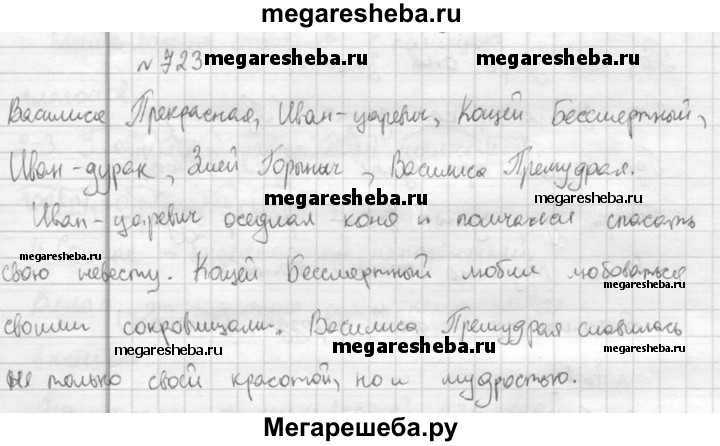 megaresheba.ru
№ 723
megaresheba.ru
megaresheba.ru
Василиса Прекрасная, Иван-царевич, Кощей Бессмертный,
Иван-дурак, Змей Горыныч, Василиса Премудрая.
megaresheba.ru
megaresheba.ru
Иван-царевич оседлал коня и помчался спасать
megaresheba.ru
свою невесту. Кощей Бессмертный любил любоваться
megaresheba.ru
megaresheba.ru
своими сокровищами. Василиса Премудрая славилась
megaresheba.ru
megaresheba.ru
megaresheba.ru
не только своей красотой, но и мудростью.
Мегарешеба.ру